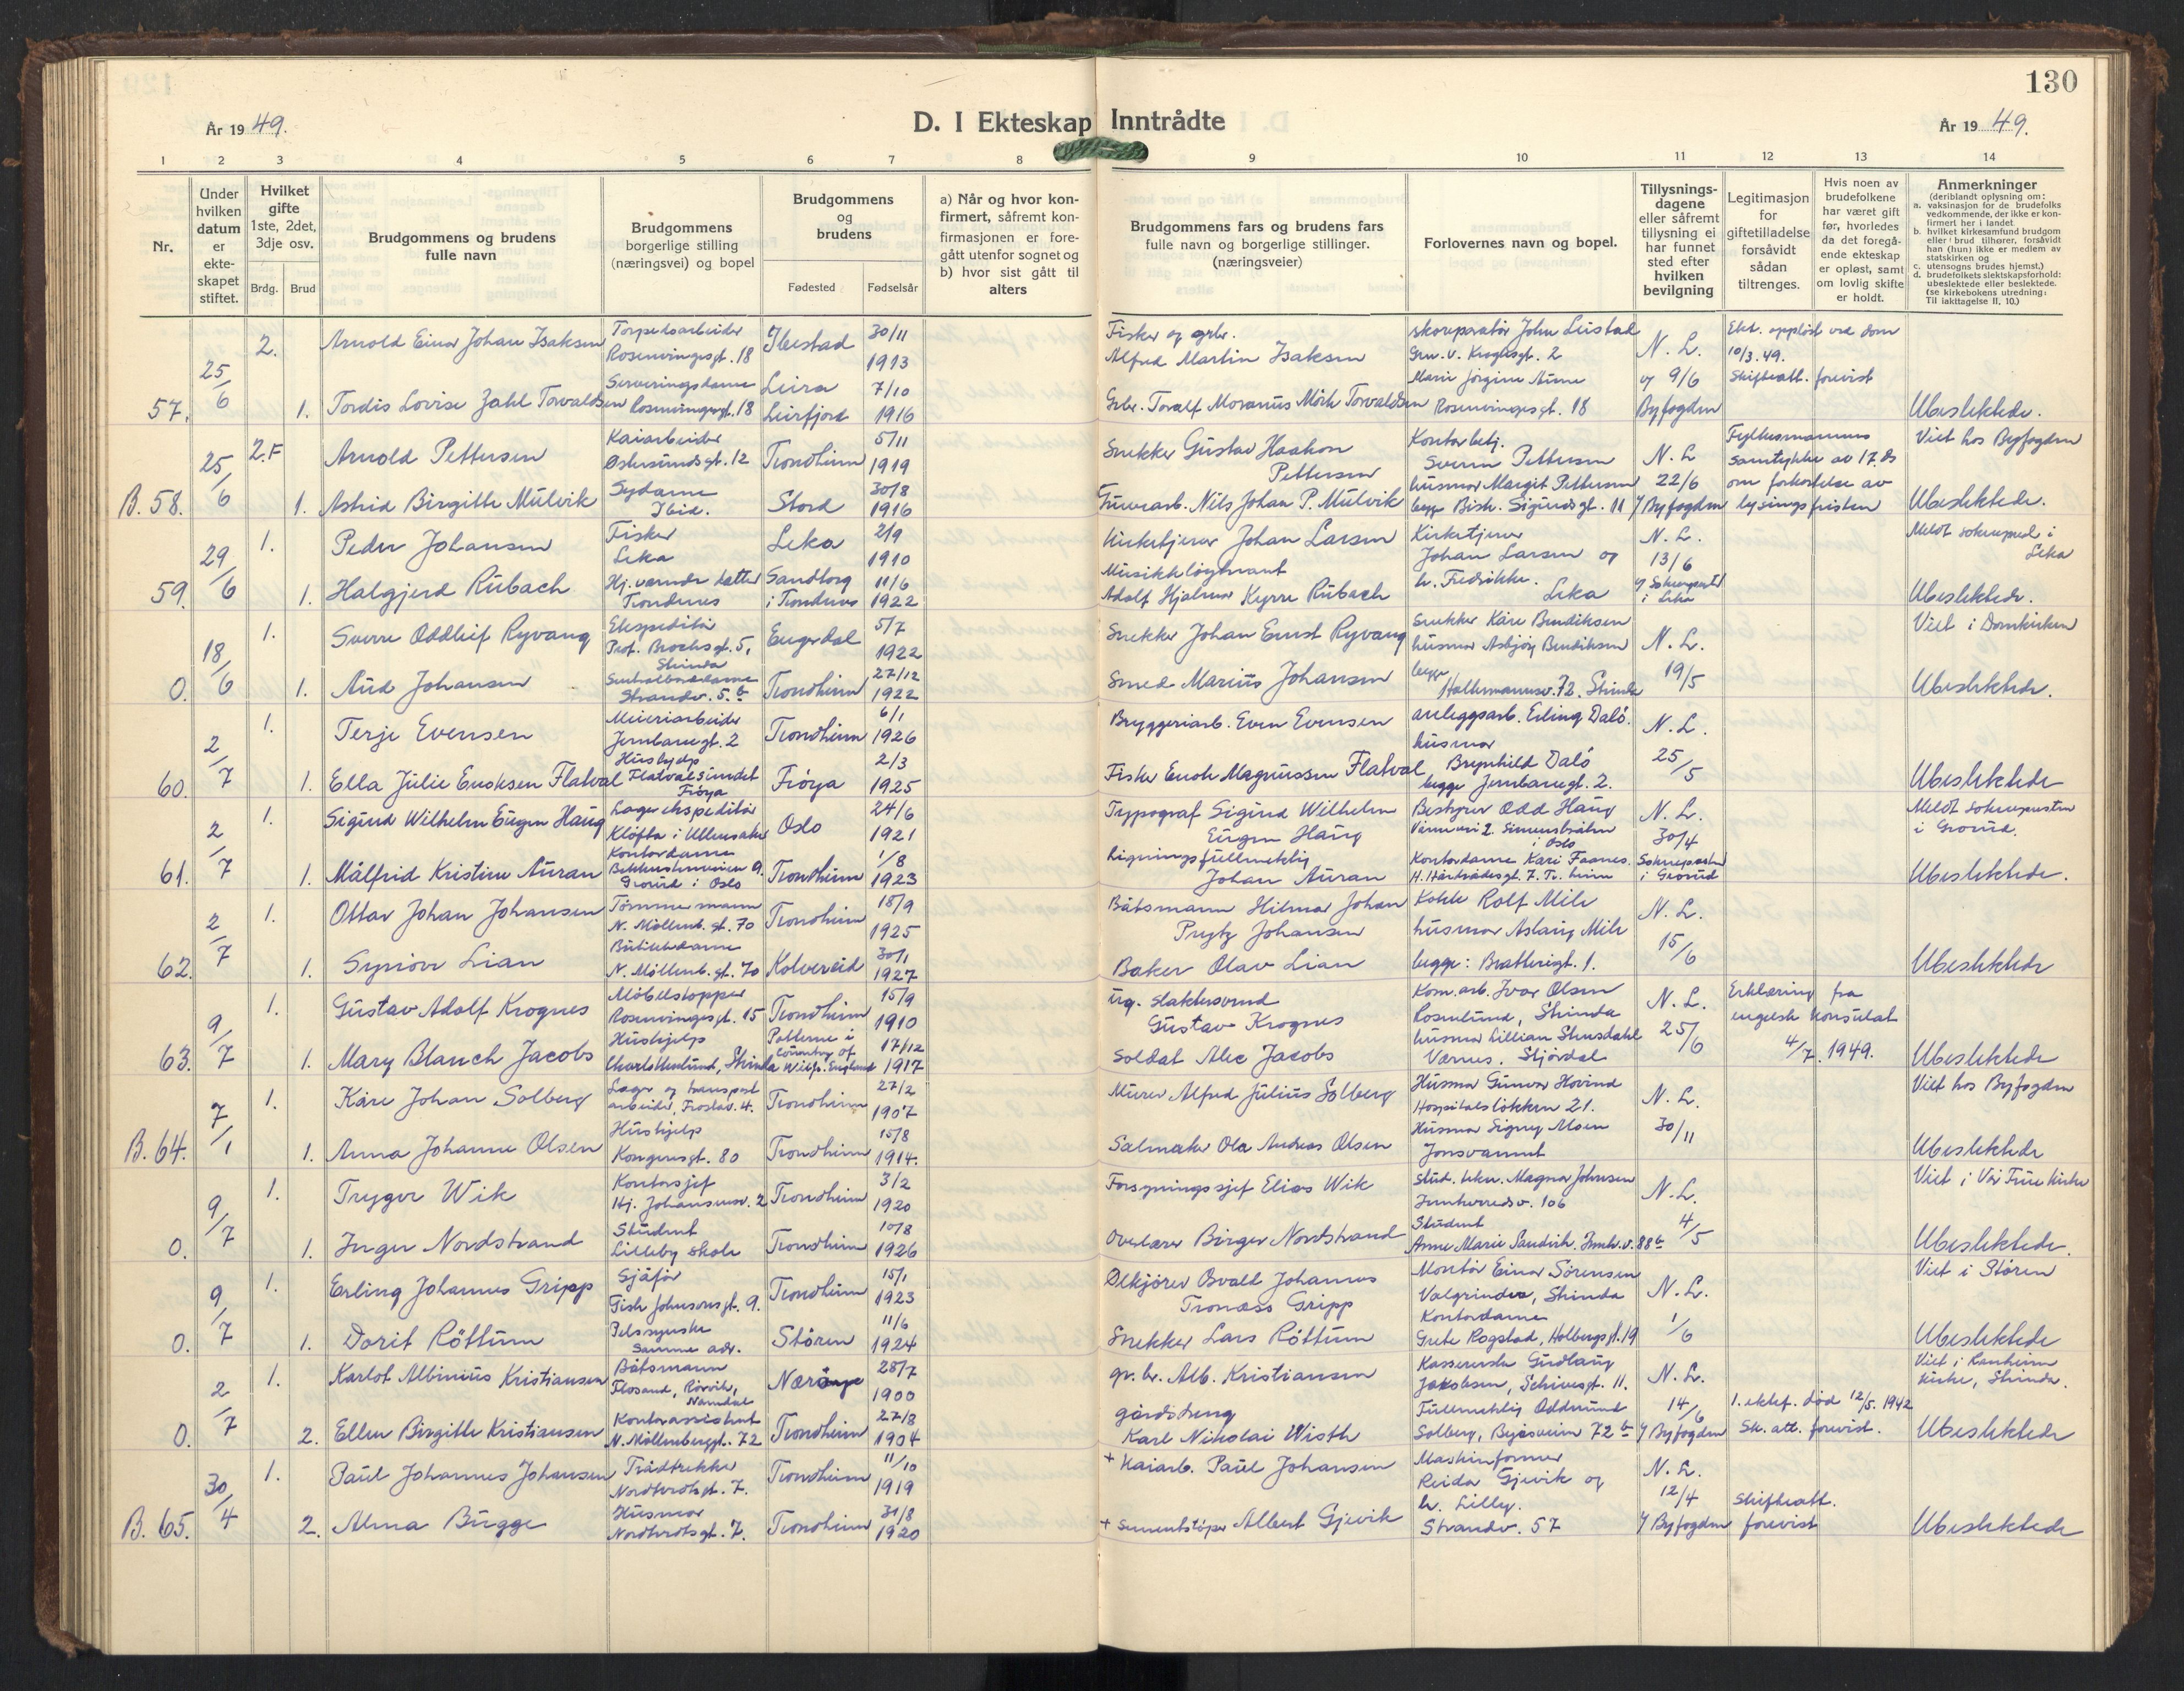 130
År 1949.
D. I Ekteskap Inntrådte
År 1949.
1 2 3 4 5 6 7 8 9 10 11 12 13 14
Nr.
Under hvilken datum er ekteskapet stiftet.
Hvilket gifte 1ste, 2det, 3dje osv.
Brdg. Brud
Brudgommens og brudens fulle navn
Brudgommens borgerlige stilling (næringsvei) og bopel
Brudgommens og brudens
Fødested Fødselsår
a) Når og hvor konfirmert, såfremt konfirmasjonen er foregått utenfor sognet og b) hvor sist gått til alters
Brudgommens fars og brudens fars fulle navn og borgerlige stillinger. (næringsveier)
Forlovernes navn og bopel.
Tillysningsdagene eller såfremt tillysning ei har funnet sted efter hvilken bevilgning
Legitimasjon for giftetilladelse forsåvidt sådan tiltrenges.
Hvis noen av brudefolkene har været gift før, hvorledes da det foregående ekteskap er opløst, samt om lovlig skifte er holdt.
Anmerkninger
(deriblandt oplysning om:
a. vaksinasjon for de brudefolks vedkommende, der ikke er konfirmert her i landet.
b. hvilket kirkesamfund brudgom eller brud tilhører, forsåvidt han (hun) ikke er medlem av statskirken og
c. utensogns brudes hjemst.)
d. brudefolkets slektskapsforhold: ubeslektede eller beslektede.
(se kirkebokens utredning: Til iakttagelse II. 10.)
57. 25/6 2. Arnold Einar Johan Isaksen Torpedoarbeider Rosenvingesgt. 18 Ibestad 30/11 1913 Fisker og grbr. Alfred Martin Isaksen skoreparatør John Leistad Grw. v. Kroghsgt. 2 N. L. Ekt. oppløst ved dom 10/3. 49.
1. Tordis Lovise Zahl Torvaldsen Serveringsdame Rosenvingesgt. 18 Leira Leirfjord 7/10 1916 Grbr. Toralf Moranus Mørk Torvaldsen Marie Jørgine Aune Rosenvingesgt. 18 og 9/6 Byfogden Skifteatt. forevist Ubeslektede.
B. 58. 25/6 2.F Arnold Pettersen Kaiarbeider Østersundsgt. 12 Trondheim 5/11 1919 Snekker Gustav Haakon Pettersen Kontorbetj. Sverin Pettersen N. L Fylkesmannens samtykke av 17. ds Viet hos Byfogden
1. Astrid Birgitte Mulvik Sydame Ibid. Stord 30/8 1916 Gruvearb. Nils Johan P. Mulvik husmor Margit Pettersen begge Bisk. Sigurdsgt. 11 22/6 Byfogden om forkortelse av lysingsfristen Ubeslektede.
59. 29/6 1. Peder Johansen Fisker Leka Leka 2/9 1910 Kirketjener Johan Larsen Kirketjener Johan Larsen og N. L. 13/6 Meldt sokneprest i Leka
1. Halgjerd Rubach Hj. værende datter Trondenes Sandtorg i Trondenes 11/6 1922 Musikkløytnant Adolf Hjalmar Kyrre Rubach h. Fredrikke. Leka Sokneprest i Leka Ubeslektede.
0. 18/6 1. Sverre Oddleif Ryvang Ekspeditør Prof. Brochsgt. 5, Strinda Engerdal 5/7 1922 Snekker Johan Ernst Ryvang snekker Kåre Bendiksen husmor Asbjørg Bendiksen N. L. Viet i Domkirken
1. Aud Johansen Sentralborddame Strandv. 5.b Trondheim 27/12 1922 Smed Marius Johansen begge Hallemannsv. 72. Strinda 19/5 Ubeslektede.
60. 2/7 1. Terje Evensen Meieriarbeider Jernbanegt. 2 Trondheim 6/1 1926 Bryggeriarb. Even Evensen anleggsarb. Erling Dalø. N. L.
1. Ella Julie Enoksen Flatval Hushjelp Flatvalsundet Frøya Frøya 2/3 1925 Fisker Enok Magnussen Flatval husmor Brynhild Dalø begge Jernbanegt. 2. 25/5 Ubeslektede
61. 2/7 1. Sigurd Wilhelm Eugen Haug Lagerekspeditør Kløfta i Ullensaker Oslo 24/6 1921 Typograf Sigurd Wilhelm Eugen Haug Bestyrer Odd Haug i Oslo N. L. 30/4 Meldt soknepresten i Grorud.
1. Målfrid Kristine Auran Kontordame Grorud i Oslo Trondheim 1/8 1923 Ligningsfullmektig Johan Auran Kontordame Kari Faanes. H. Hårfadesgt. 7. Tr.heim Soknepresten i Grorud Ubeslektede.
62. 2/7 1. Ottar Johan Johansen Tømmermann N. Møllenb. gt. 70 Trondheim 18/9 1925 Båtsmann Hilmar Johan Prytz Johansen Kokk Rolf Mile N. L.
1. Synnøv Lian Butikkdame N. Møllenb. gt. 70 Kolvereid 30/1 1927 Baker Olav Lian husmor Aslaug Mile begge: Bratterigt. 1. 15/6 Ubeslektede
63. 9/7 1. Gustav Adolf Krognes Møbelstopper Rosenvingesgt. 15 Trondheim 15/9 1910 Ur. slaktersvend Gustav Krognes Kom.arb. Ivar Olsen Rosenlund, Strinda N. L. Erklæring fra engelsk konsulat
1. Mary Blanch Jacobs Hushjelp Charlottenlund, Strinda Potterne i County of Wilts. England 17/12 1917 Soldat Alec Jacobs husmor Lillian Stensdahl Værnes. Stjørdal 25/6 4/7. 1949. Ubeslektede
B. 64. 7/1 1. Kåre Johan Solberg Lager og transportarbeider, Frostav. 4. Trondheim 27/2 1907 Murer Alfred Julius Solberg Husmor Gunvor Hovind Hospitalsløkken 21. N. L. Viet hos Byfogden
1. Anna Johanne Olsen Hushjelp Kongensgt. 80 Trondheim 15/8 1914. Salmaker Ola Andreas Olsen Husmor Signy Moen Jonsvannet 30/11 Ubeslektede
0. 9/7 1. Trygve Wik Kontorsjef Hj. Johansensv. 2 Trondheim 3/2 1920 Forsyningssjef Elias Wik Stud. tekn. Magnar Johnsen Innherredsv. 106 N. L. Viet i Vår Frue kirke
1. Inger Nordstrand Student Lilleby skole Trondheim 10/8 1926 Overlærer Birger Nordstrand Student Anne Marie Sandvik. Innh.v. 88b 4/5 Ubeslektede.
0. 9/7 1. Erling Johannes Gripp Sjåfør Gisle Johnsonsgt. 9. Trondheim 15/1 1923 Ølkjører Osvald Johannes Tronæss Gripp Montør Einar Sørensen Valgrindv., Strinda N. L. Viet i Støren
1. Dorit Røttum Pelssyerske Samme adr. Støren 11/6 1924 Snekker Lars Røttum Kontordame Grete Rogstad, Holbergsgt. 19 1/6 Ubeslektede
0. 2/7 1. Karlot Albinius Kristiansen Båtsmann Flosand, Rørvik, Namdal Nærøy 28/7 1900 gr. br. Alb. Kristiansen Kassererske Gudlaug Jakobsen, Schivesgt. 11. N. L. Viet i Ranheim kirke, Strinda.
2. Ellen Birgitte Kristiansen Kontorassistent N. Møllenberggt. 72 Trondheim 27/8 1904 gårdsdreng Karl Nikolai Wisth Fullmektig Oddmund Solberg, Byåsveien 72b 14/6 Byfogden 1. ektef. død 12/5. 1942 Sk. att. forevist. Ubeslektede
B. 65. 30/4 1. Paul Johannes Johansen Trådtrekker Nordtvedtsgt. 7. Trondheim 11/10 1919 + Kaiarb. Paul Johansen Maskinformer Reidar Gjevik og N. L. 12/4
2. Alma Bugge Husmor Nordtvedtsgt. 7. Trondheim 31/8 1920 + Sementstøper Albert Gjevik h. Lilly. Strandv. 57 Byfogden Skifteatt. forevist Ubeslektede